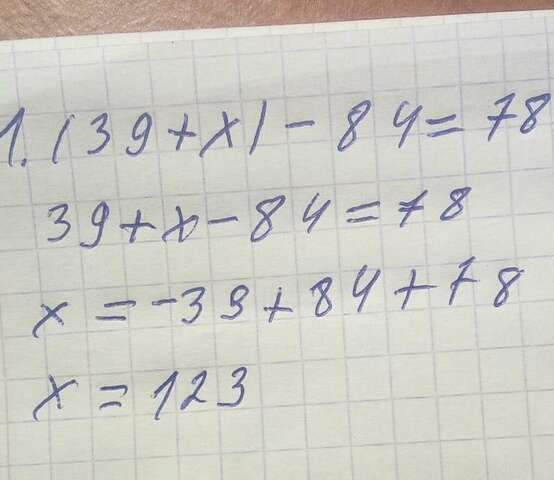 1. (39+x) - 84 = 78
39+x-84=78
x = -39+84+78
x = 123